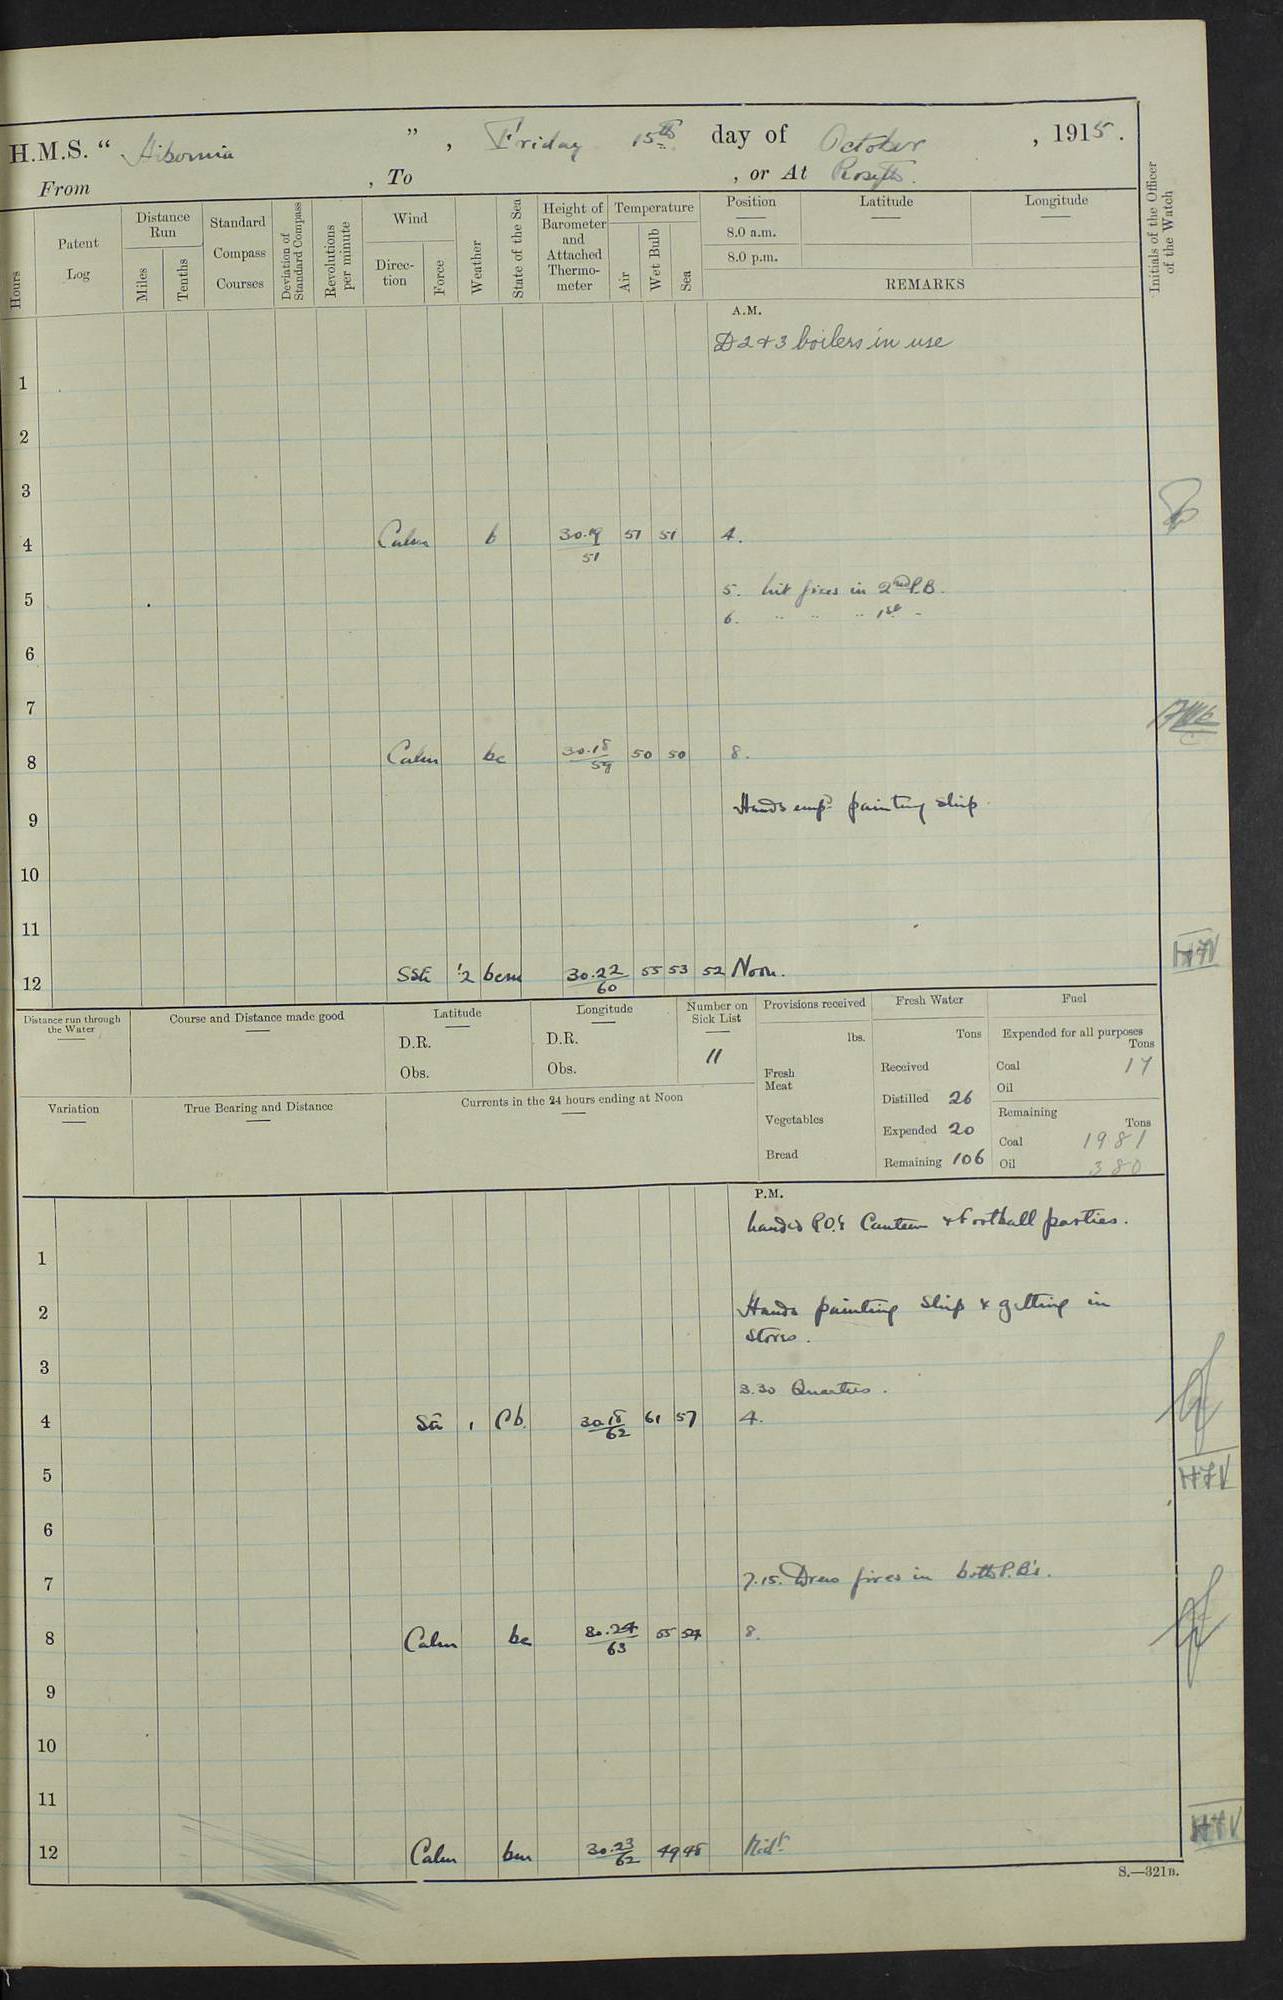 H.M.S. “ Hibernia ”, Friday 15th day of October, 1915.
From , To , or At Rosyth.
Hours
Patent Log
Distance Run
Miles
Tenths
Standard Compass Courses
Deviation of Standard Compass
Revolutions per minute
Wind
Direction
Force
Weather
State of the Sea
Height of Barometer and Attached Thermometer
Temperature
Air
Wet Bulb
Sea
Position
Latitude
Longitude
8.0 a.m.
8.0 p.m.
REMARKS
Initials of the Officer of the Watch
A.M.
D 2 & 3 boilers in use
1
2
3
4 Calm b 30.19/51 51 51 4.
5 5. Lit fires in 2nd P.B.
6. " " " 1st "
6
7
8 Calm bc 30.18/59 50 50 8.
9 Hands emp. painting ship
10
11
12 SSE 1/2 bcm 30.22/60 55 53 52 Noon. HFV
Distance run through the Water
Course and Distance made good
Latitude
D.R.
Obs.
Longitude
D.R.
Obs.
Number on Sick List
11
Provisions received
lbs.
Fresh Meat
Vegetables
Bread
Fresh Water
Tons
Received
Distilled 26
Expended 20
Remaining 106
Fuel
Expended for all purposes
Tons
Coal 17
Oil
Remaining
Tons
Coal 1981
Oil 380
Variation
True Bearing and Distance
Currents in the 24 hours ending at Noon
P.M.
Landed P.O.s Canteen & Football parties.
1
2 Hands painting Ship & getting in
stores.
3
3.30 Quarters.
4 SE 1 Cb. 30.18/62 61 57 4.
HFV
5
6
7 7.15. Drew fires in both P.B's.
8 Calm bc 30.24/63 55 54 8.
9
10
11
12 Calm bm 30.23/62 49 48 Midt. HFV
S.—321B.